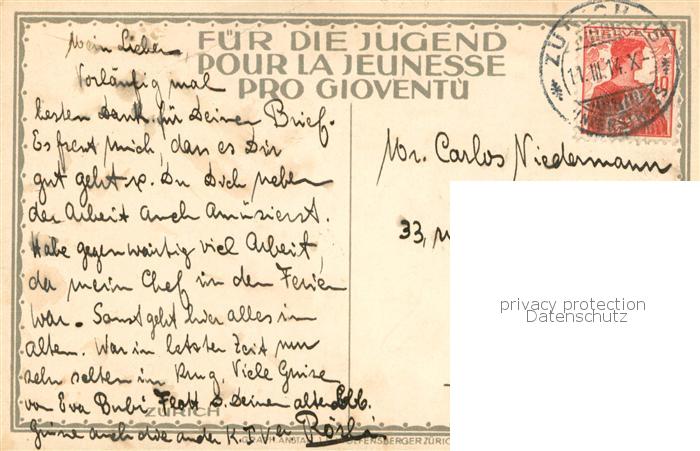 FÜR DIE JUGEND
POUR LA JEUNESSE
PRO GIOVENTÙ
Mein Lieber
Vorläufig mal
besten Dank für Deinen Brief.
Es freut mich, dass es Dir
gut geht u. Du Dich neben
der Arbeit auch amüsierst.
Habe gegenwärtig viel Arbeit,
da mein Chef in den Ferien
war. Sonst geht hier alles im
alten. War in letzter Zeit nur
sehr selten im Ring. Viele Grüsse
von Eva Bubi u. Deinem alten
Grüsse auch die andern
Mr. Carlos Niedermann
33,
ZÜRICH
11.III.14.X-
HELVETIA
10
privacy protection
Datenschutz
ZÜRICH
GRAPH. ANSTALT J. E. WOLFENSBERGER ZÜRICH